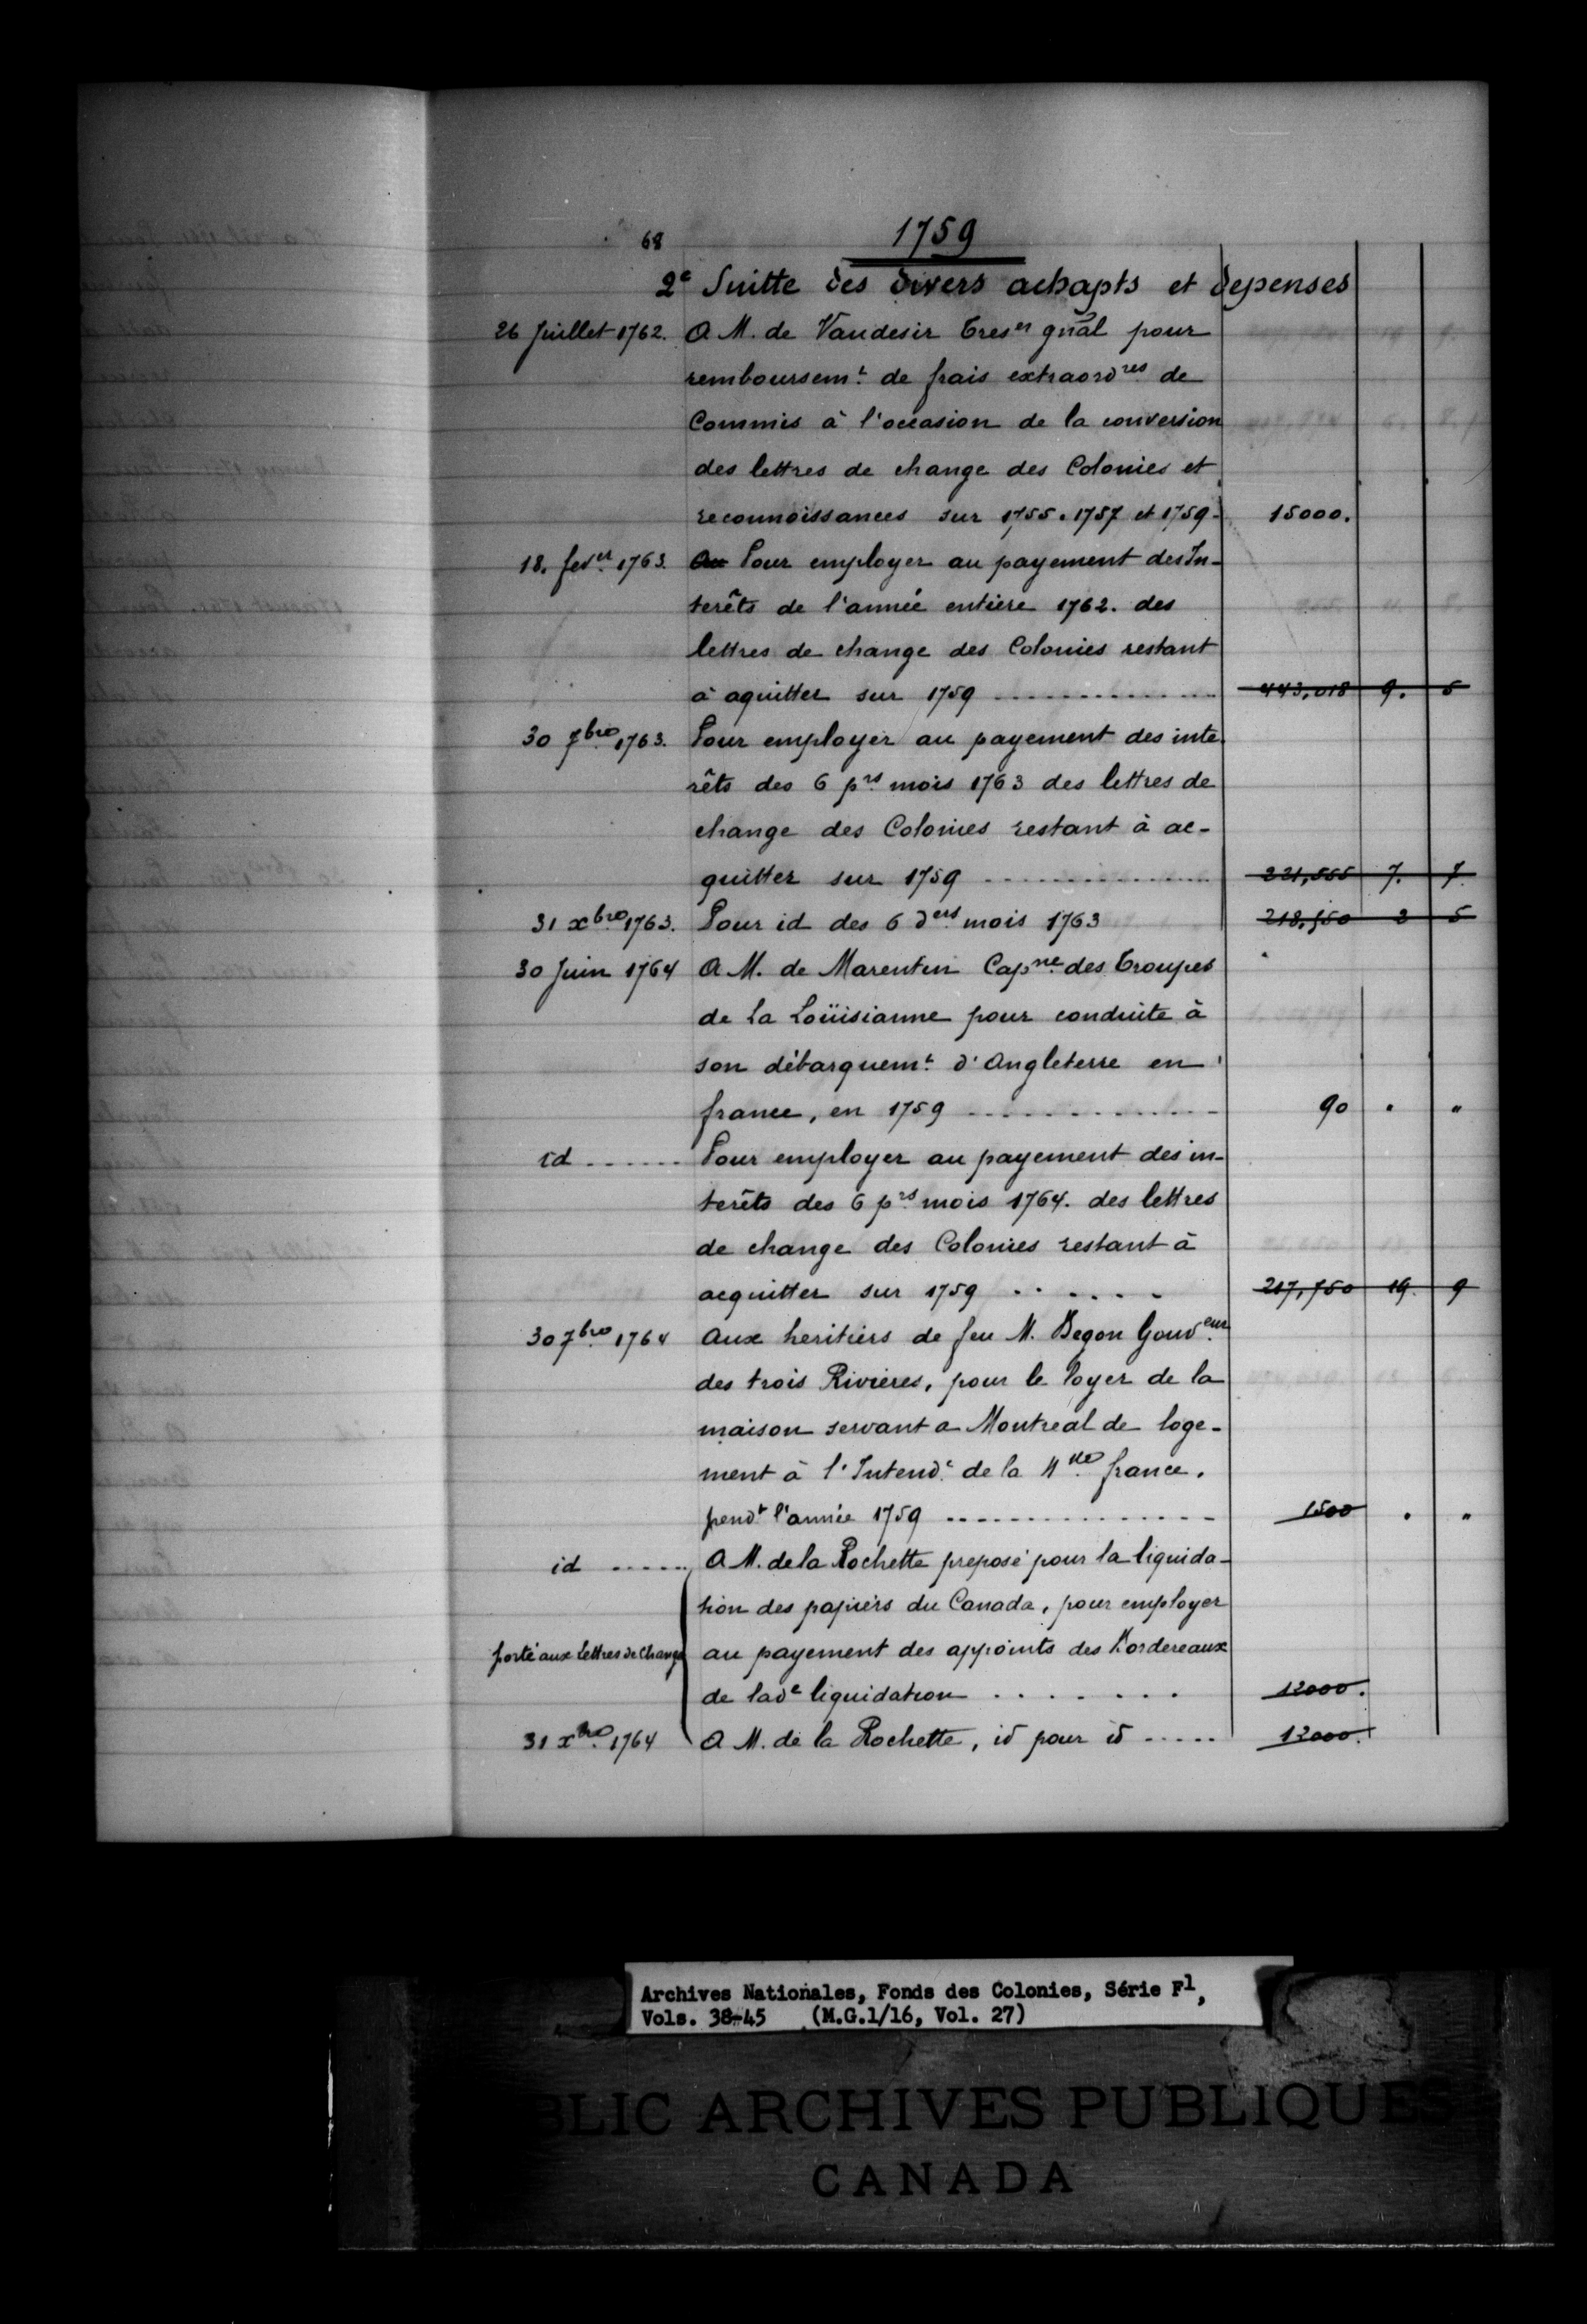 68
1759
2e Suitte des divers achapts et depenses
26 Juillet 1762. A M. de Vandesir Treser gnãl pour
remboursemt. de frais extraordres de
Commis à l'occasion de la conversion
des lettres de change des Colonies et
reconnoissances sur 1755. 1757 et 1759. 15000.
18. fever. 1763. Au Pour employer au payement des In-
terêts de l'année entiere 1762. des
lettres de change des Colonies restant
à aquitter sur 1759 .............. 443,018 9. 5
30 7bre. 1763. Pour employer au payement des inte
rêts des 6 prs. mois 1763 des lettres de
change des Colonies restant à ac-
quitter sur 1759 .............. 221,555 7. 7.
31 xbre. 1763. Pour id des 6 ders. mois 1763 218,750 2 5
30 Juin 1764 A M. de Marentin Capne. des Troupes
de La Loüisianne pour conduite à
son débarquemt. d'Angleterre en
france, en 1759 .............. 90 . "
id ...... Pour employer au payement des in-
terêts des 6 prs. mois 1764. des lettres
de change des Colonies restant à
acquitter sur 1759 ...... 217,750 19. 9
30 7bre. 1764 Aux heritiers de feu M. Begon Gouveur.
des trois Rivieres, pour le loyer de la
maison servant a Montreal de loge-
ment à l'Intendt. de la Nlle. france.
pendt l'année 1759 .............. 1500 . "
id ...... A M. de la Rochette preposé pour la liquida-
tion des papiers du Canada, pour employer
porté aux Lettres de Change au payement des appoints des Bordereaux
de lade liquidation ........ 12000.
31 xbre. 1764 A M. de la Rochette, id pour id ..... 12000.
Archives Nationales, Fonds des Colonies, Série F1,
Vols. 38-45 (M.G.1/16, Vol. 27)
BLIC ARCHIVES PUBLIQUES
CANADA